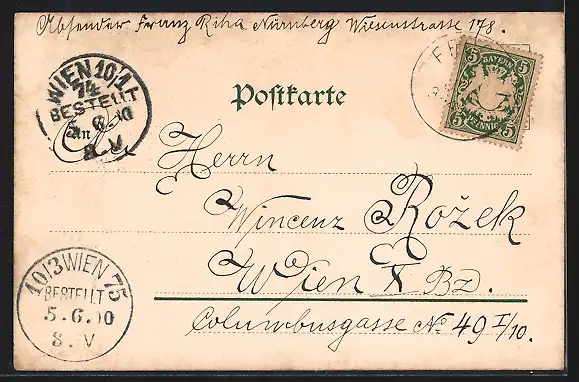 Absender Franz Riha Nürnberg Wiesenstrasse 178.
WIEN 10/1
74
BESTELLT
5 6 00
8. V
BAYERN
5 5
PFENNIG
5 5
Postkarte
An
Herrn
Wincenz Rožek
Wien X Bz.
Columbusgasse No 49 I/10.
10/3 WIEN 75
BESTELLT
5. 6. 00
8. V